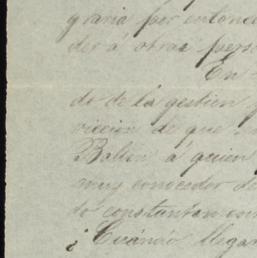 graria por entonce
der á otras pers
En
do de la gestion
viccion de que
Balen á quien
muy conocedor de
do constantem
¿Cuándo llegar